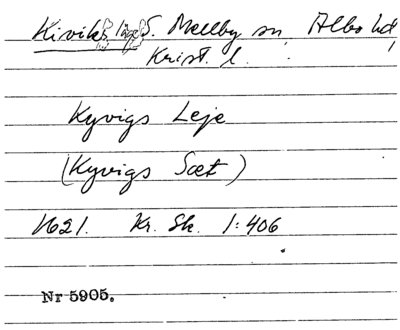 Kiviks läge S. Mellby sn, Albo hd,
Krist. l.
Kyvigs Leje
(Kyvigs Sæt)
1621. Kr. Sk. 1:406
Nr 5905.